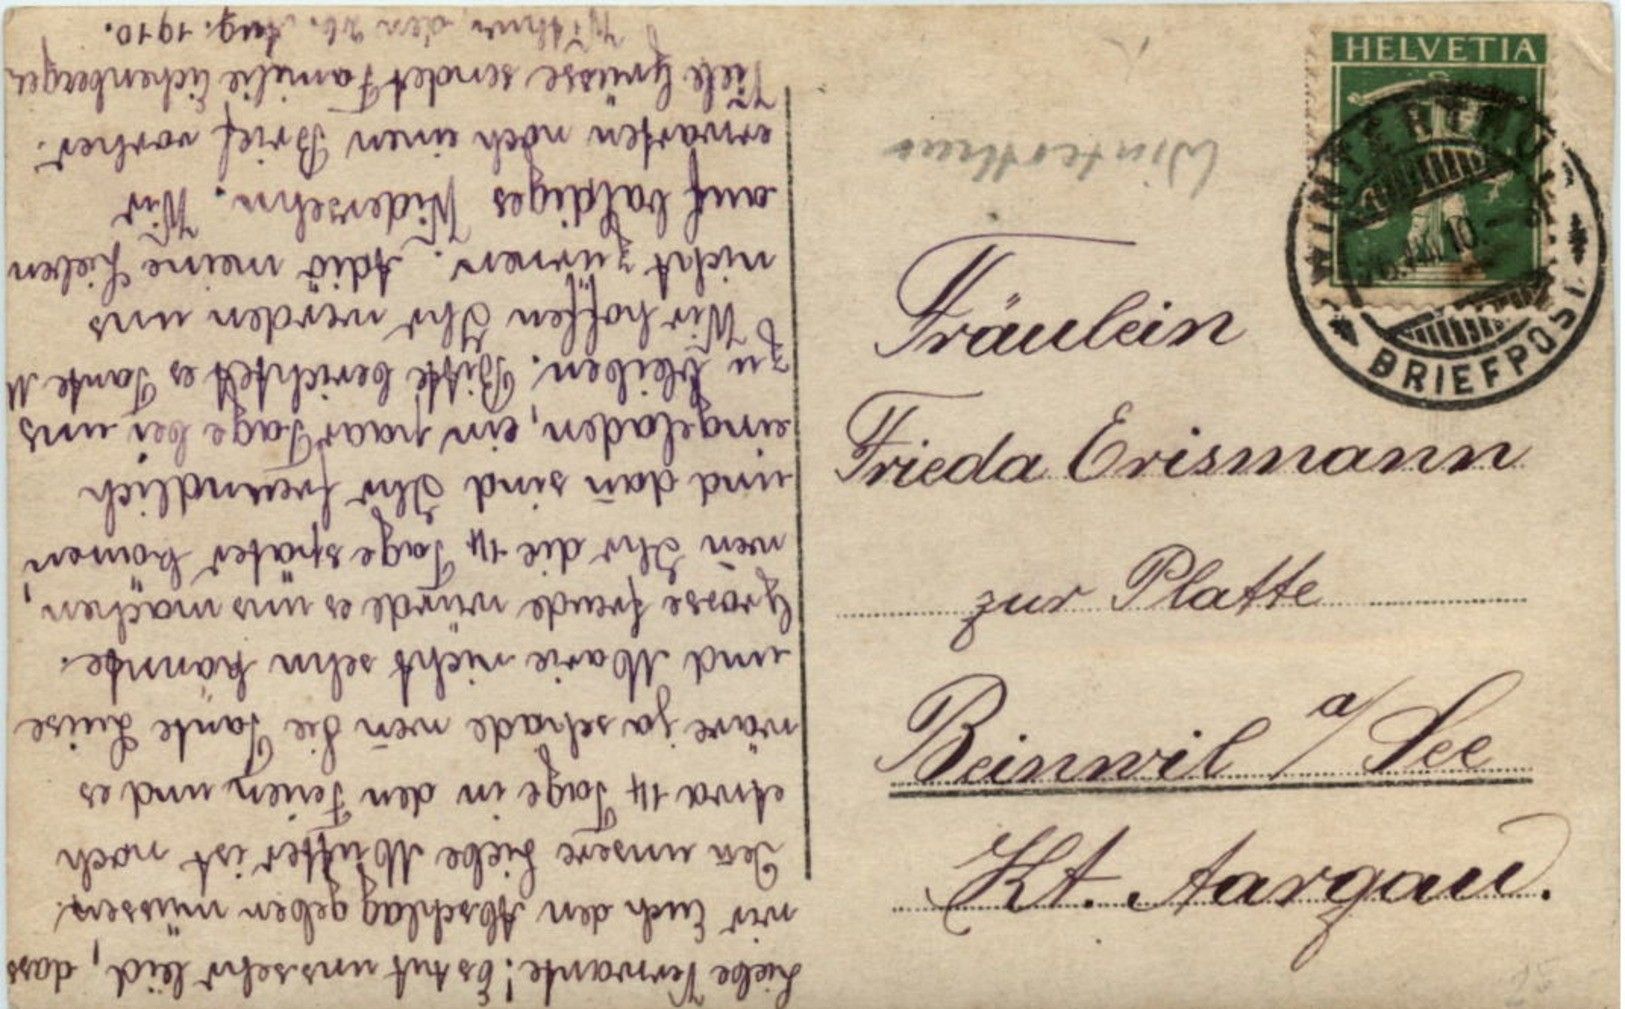 Liebe Verwante! Es tut uns sehr leid, dass
wir Euch den Abschlag geben müssen.
Den̄ unsere Liebe Mutter ist noch
etwa 14 Tage in den Ferien und es
wäre ja schade wen̄ die Tante Luise
und Marie nicht sehn kännte.
Grosse freude würde es uns mächen,
wen̄ Ihr die 14 Tage später kom̄en
und dan̄ sind Ihr freundlich
eingeladen, ein paar Tage bei uns
zu bleiben. Bitte berichtet es Tante M
Wir hoffen Ihr werden uns
nicht zürnen. Adiö meine Lieben
auf baldiges Widersehn. Wir
erwarten noch einen Brief vorher.
Viele Grüsse sendet Familie Eichenberger
den 26. Aug. 1910.
HELVETIA
WINTERTHUR
10.
BRIEFPOST
Winterthur
Fräulein
Frieda Erismann
zur Platte
Beinwil a/See
Kt. Aargau.